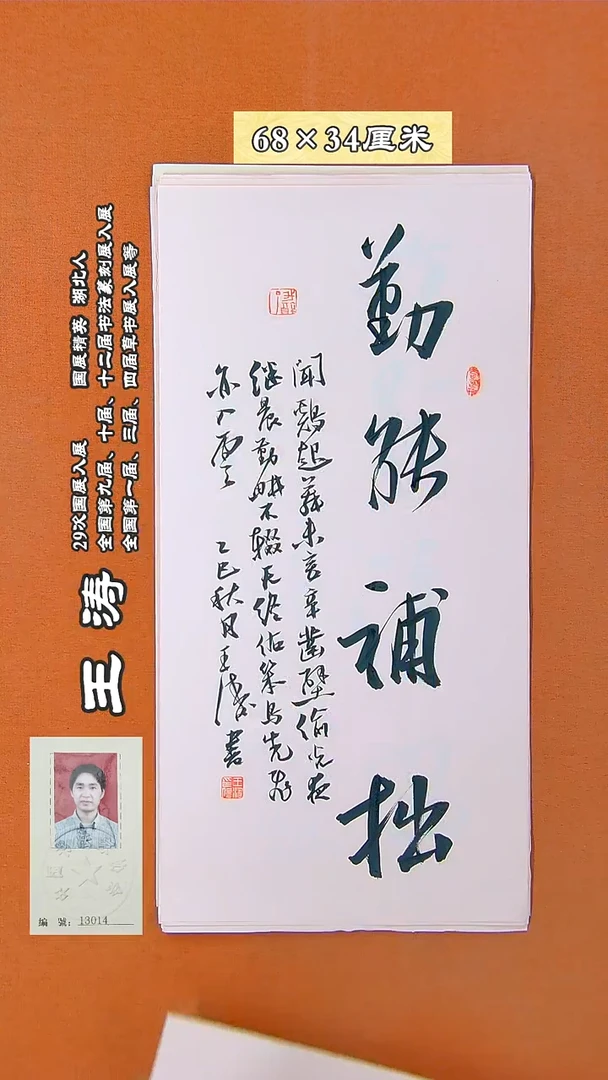 68×34厘米
勤能補拙
闻鷄起舞未言辛凿壁偷光夜
继晨勤耕不辍天终佑笨鸟先飛
亦入雲 乙巳秋月王涛書
王涛
29次国展入展 国展精英 湖北人
全国第九届、十届、十二届书法篆刻展入展
全国第一届、三届、四届草书展入展等
编 號：13014